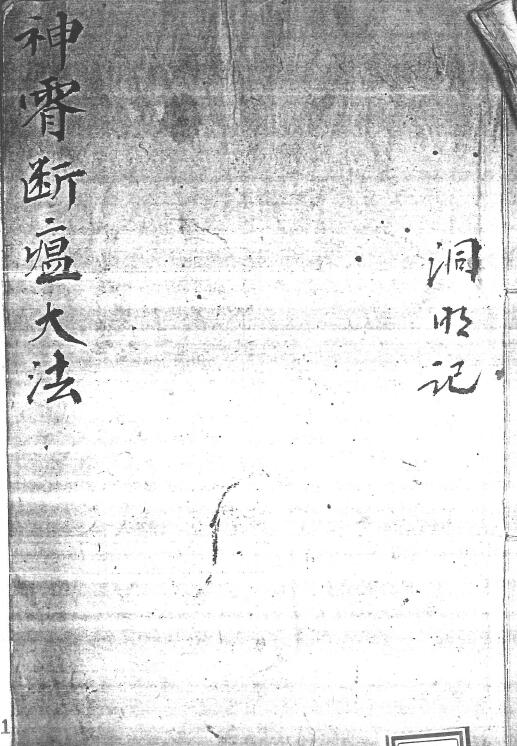 洞明記
神霄断瘟大法
1